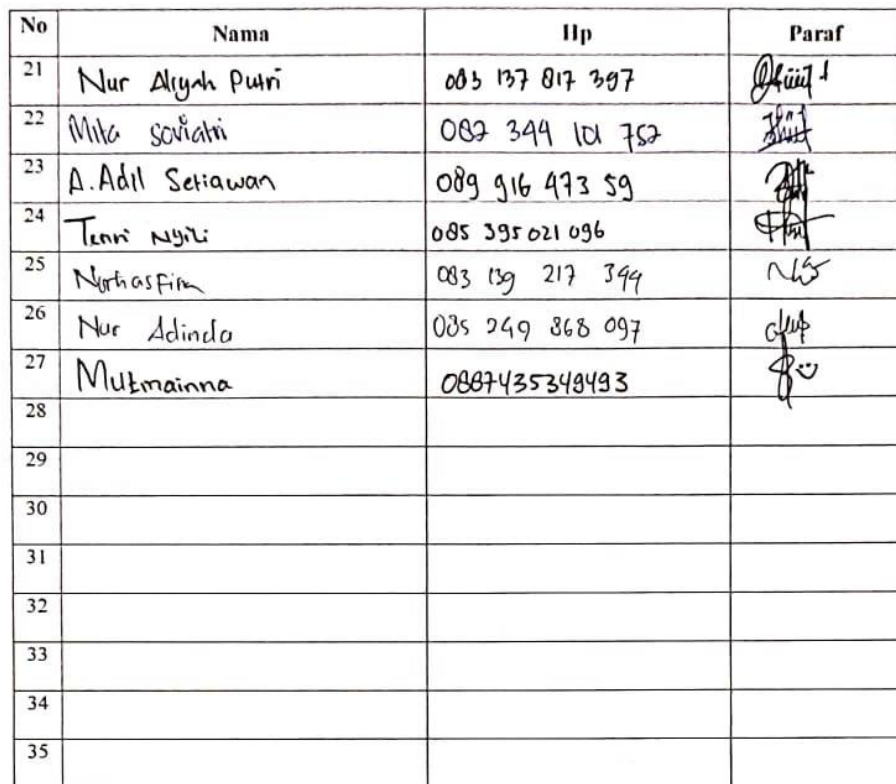 No Nama Hp Paraf
21 Nur Aliyah Putri 083 137 817 397
22 Mita Soviatri 082 344 101 752
23 A. Adil Setiawan 089 916 473 59
24 Tenri Nyili 085 395 021 096
25 Nurhasfira 083 139 217 394
26 Nur Adinda 085 249 868 097
27 Mutmainna 0887435349493
28
29
30
31
32
33
34
35